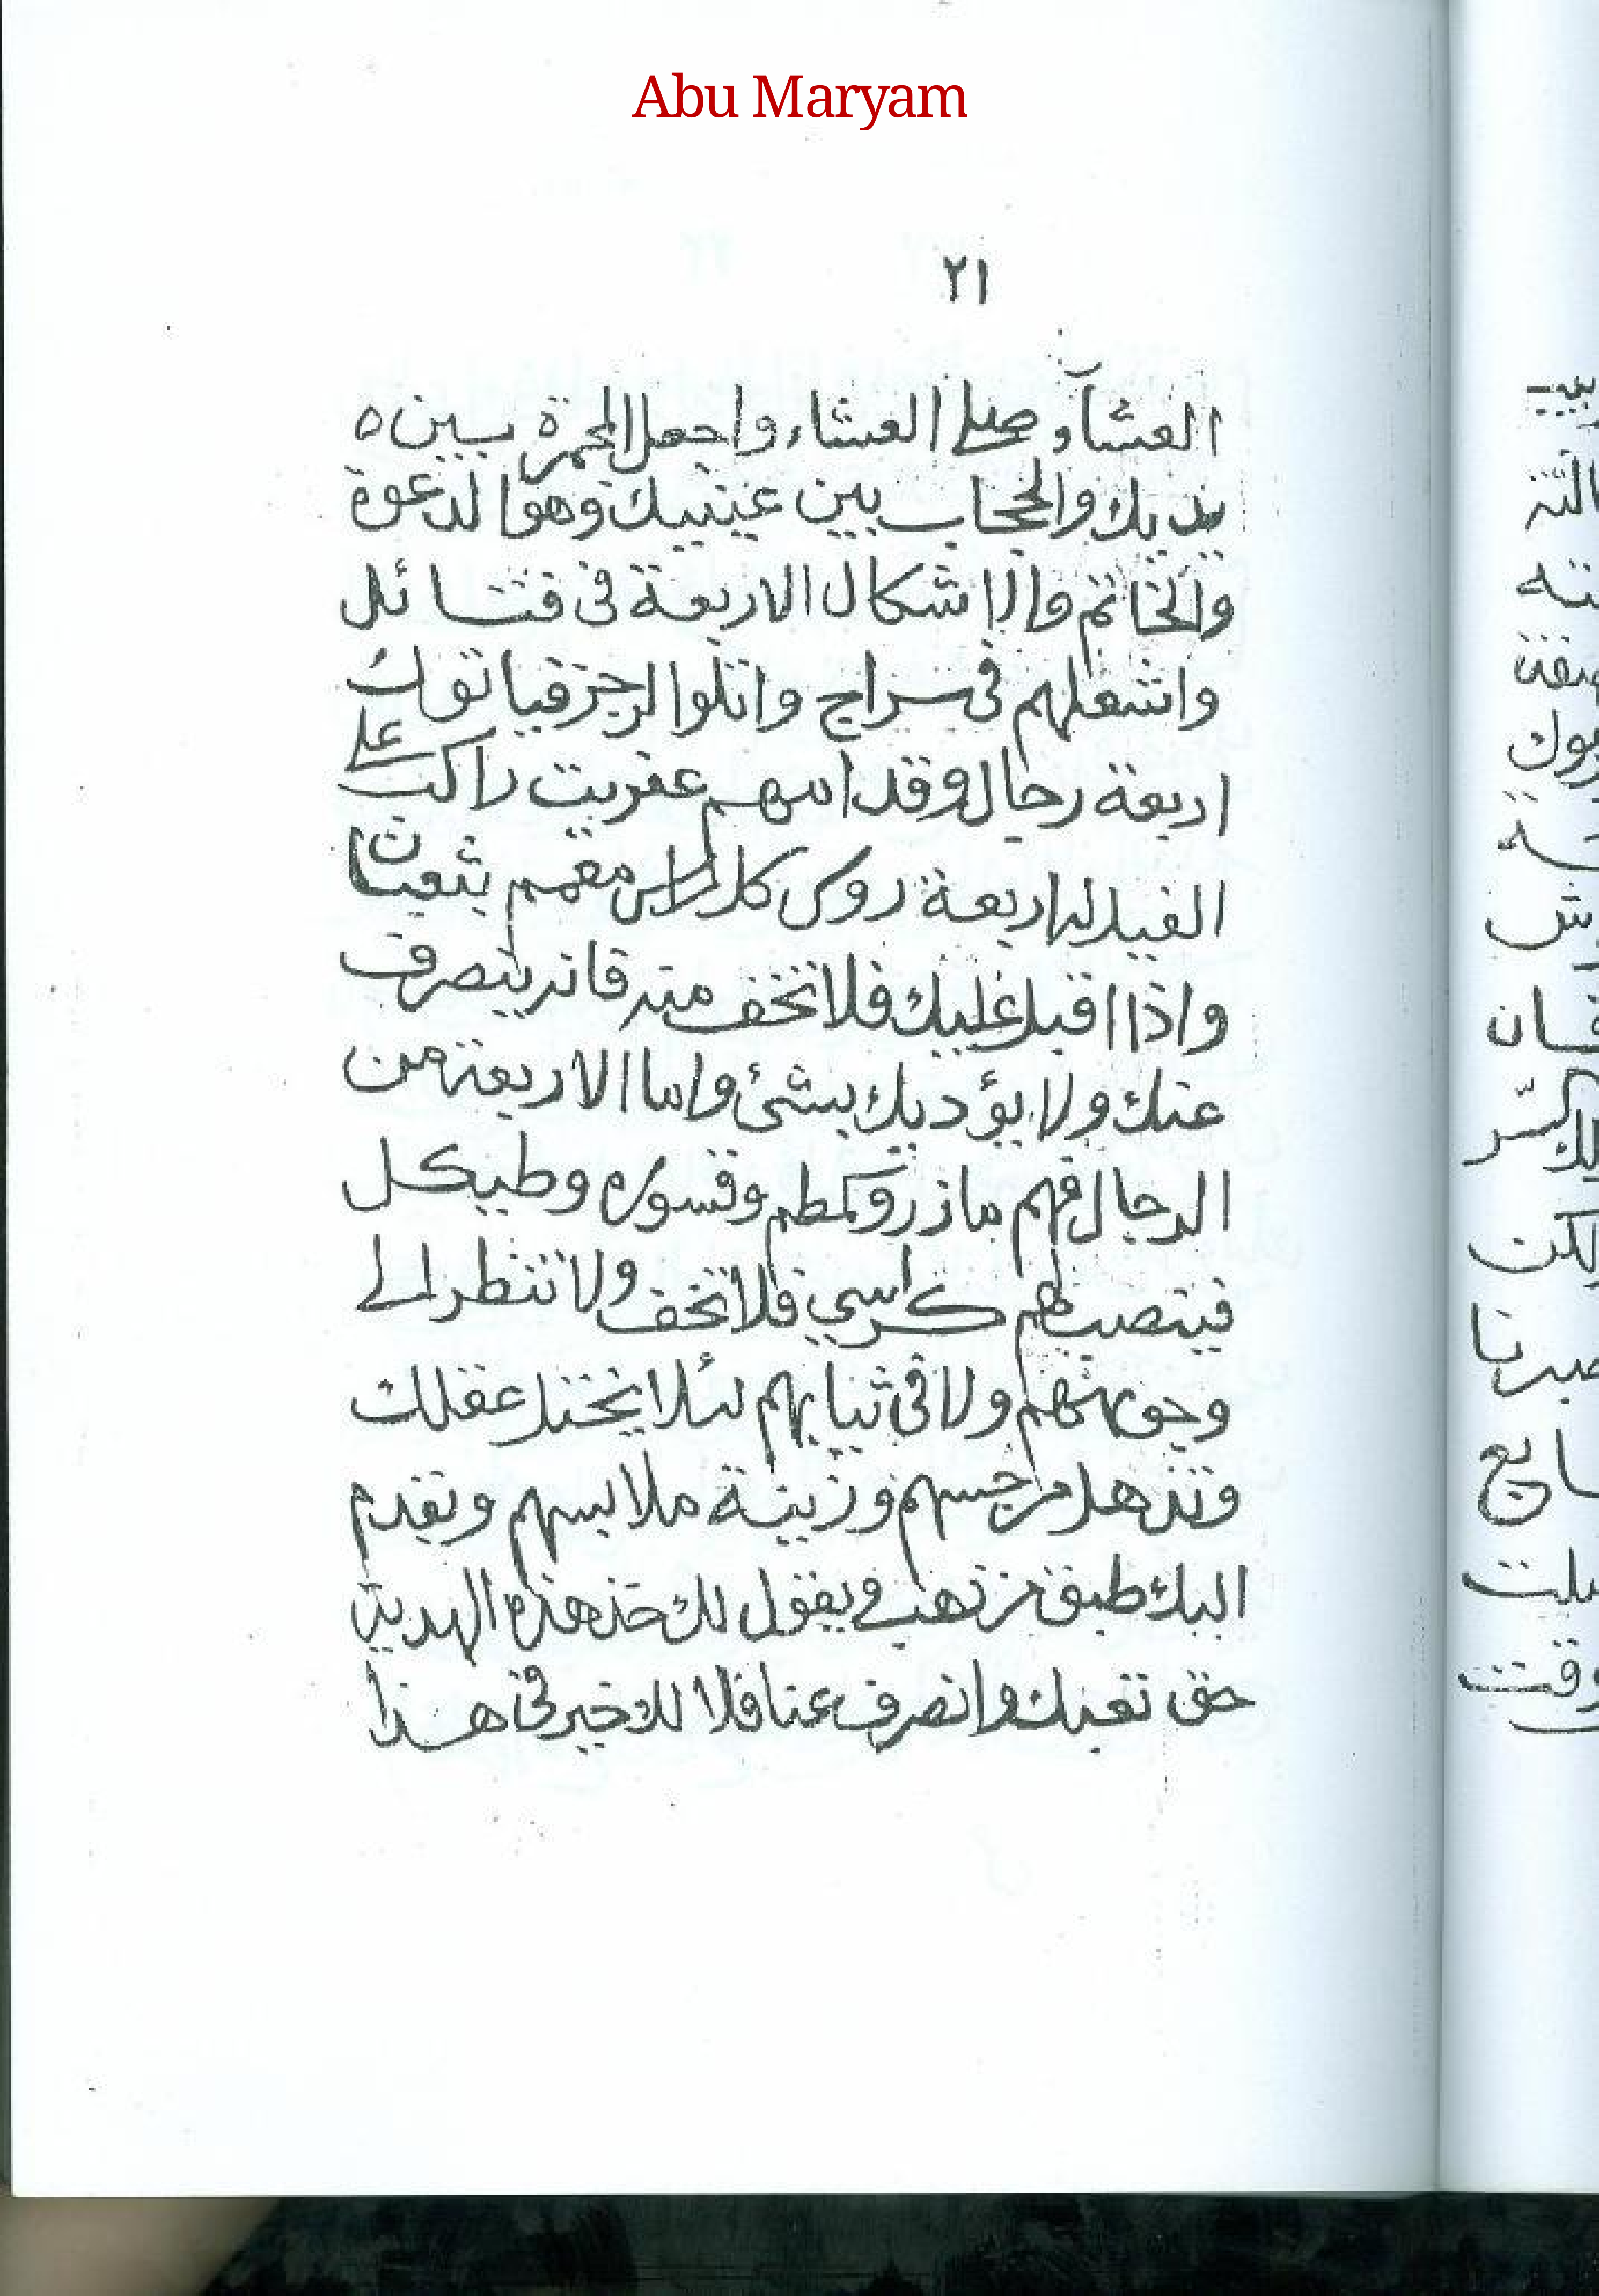 Abu Maryam
٢١
العشآء وصلى العشاء واجعل المجمرة بين
يديك والحجاب بين عينيك وهوا لدعوة
والخاتم والاشكال الاربعة فى فتائل
واشعلهم فى سراج واتلوا الرجز فياتوك
اربعة رجال وقدامهم عفريت راكب على
الفيل له اربعة روس كل راس معمم بثعبان
واذا اقبل عليك فلا تخف منه فانه ينصرف
عنك ولا يؤديك بشئ واما الاربعة من
الرجال فهم مازر وكمطم وقسوره وطيكل
فينصب لهم كراسي فلا تخف ولا تنظر الى
وجوههم ولا فى ثيابهم لئلا يختل عقلك
وتذهل من حسنهم وزينة ملابسهم ويقدم
اليك طبق من ذهب ويقول لك خذ هذه الهدية
حق تعبك وانصرف عنا فلا لك خير فى هذا